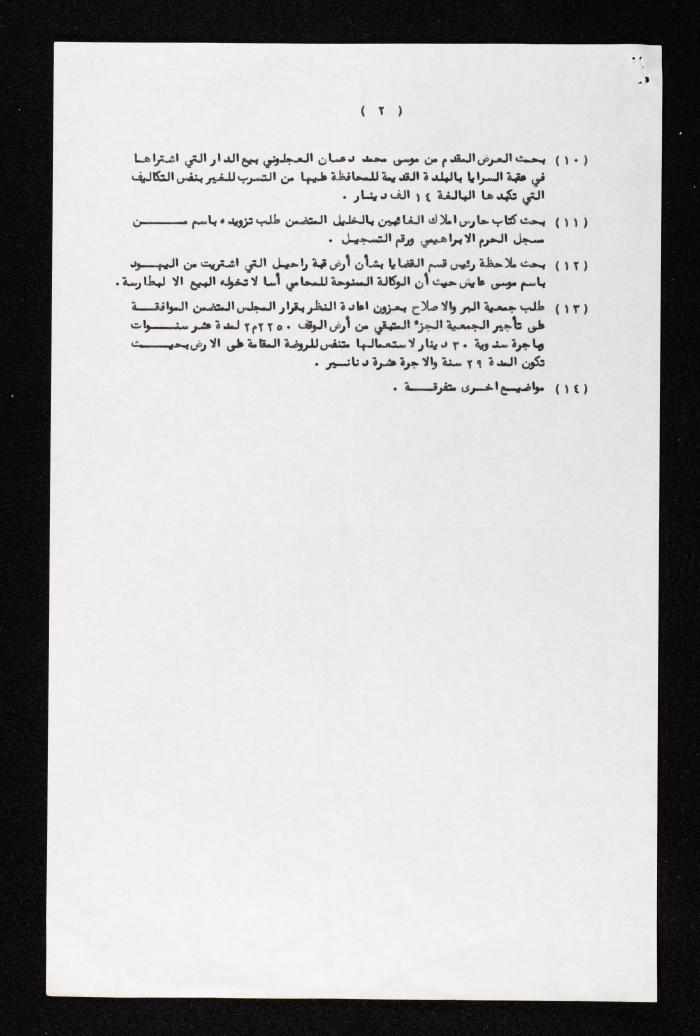 ( ٢ )
(١٠) بحث العرض المقدم من موسى محمد دعسان العجلوني ببيع الدار التي اشتراها
في عقبة السرايا بالبلدة القديمة للمحافظة عليها من التسرب للغير بنفس التكاليف
التي تكبدها البالغة ١٤ الف دينار .
(١١) بحث كتاب حارس املاك الغائبين بالخليل المتضمن طلب تزويده باسم مــــن
سجل الحرم الابراهيمي ورقم التسجيل .
(١٢) بحث ملاحظة رئيس قسم القضايا بشأن أرض قبة راحيل التي اشتريت من اليهود
باسم موسى عايش حيث أن الوكالة الممنوحة للمحامي أسا لا تخوله البيع الا لبطارسة .
(١٣) طلب جمعية البر والاصلاح بعزون اعادة النظر بقرار المجلس المتضمن الموافقة
على تأجير الجمعية الجزء المتبقي من أرض الوقف ٢٢٥٠م٢ لمدة عشر سنوات
وباجرة سنوية ٣٠ دينار لاستعمالها متنفس للروضة المقامة على الارض بحيث
تكون المدة ٢٩ سنة والاجرة عشرة دنانير .
(١٤) مواضيع اخرى متفرقة .